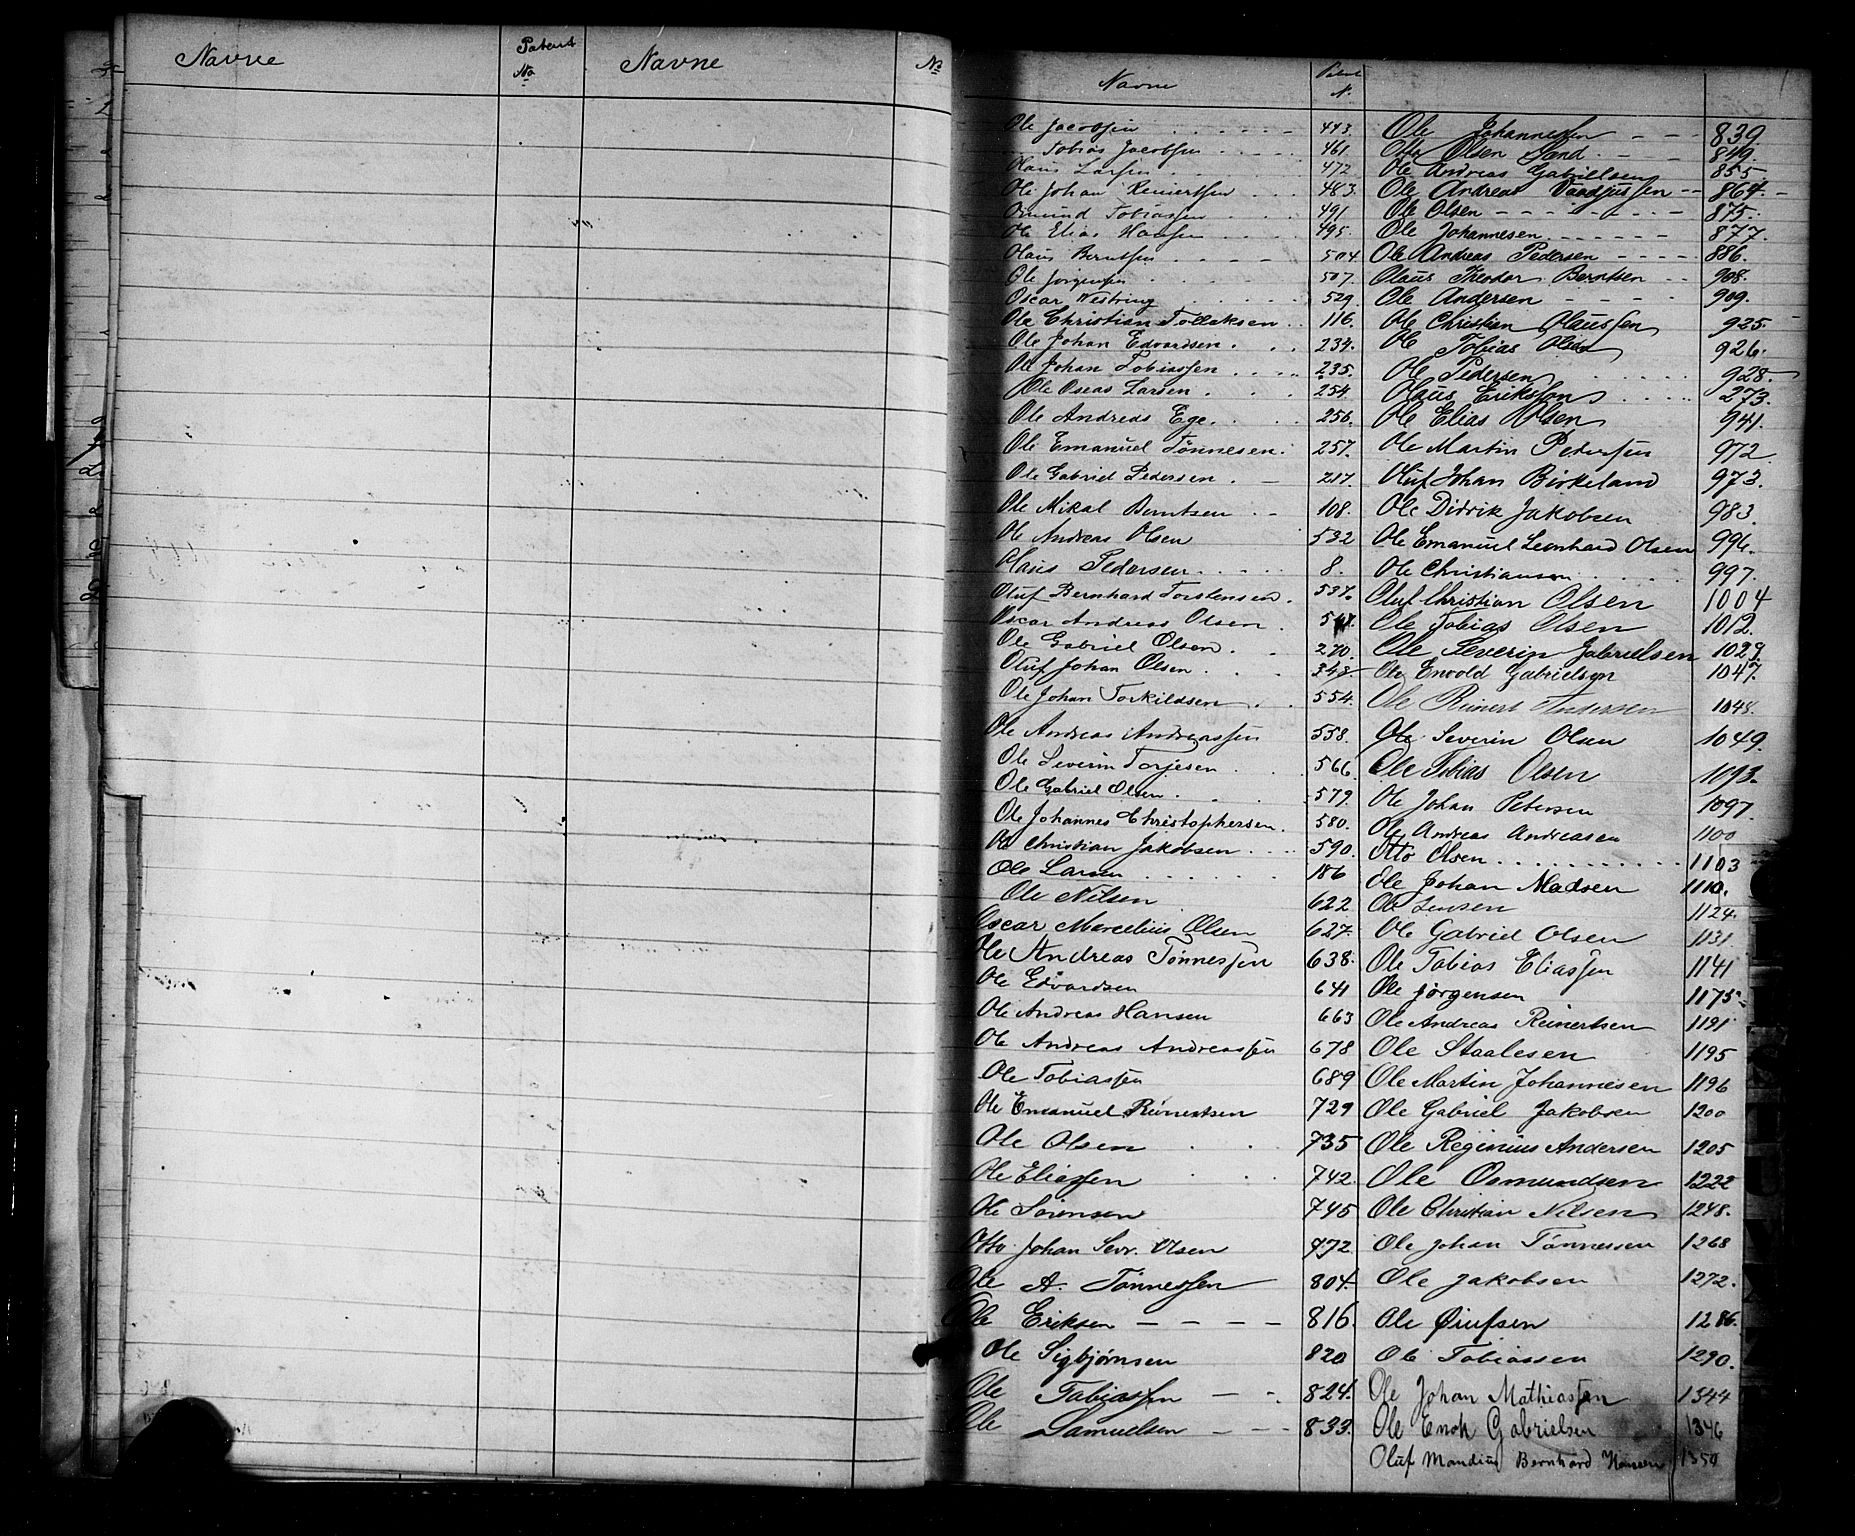 Navne Patent No Navne No
Navne Patent N.
Ole Jacobsen 443.
Tobias Jacobsen 461.
Olaus Larsen 472
Ole Johan Reinertsen 483.
Omund Tobiassen 491.
Ole Elias Hansen 495.
Olaus Berntsen 504
Ole Jörgensen 507.
Oscar Westring 529.
Ole Christian Tollaksen 116.
Ole Johan Edvardsen 234.
Ole Johan Tobiassen 235.
Ole Oseas Larsen 254
Ole Andreas Ege 256.
Ole Emanuel Tönnesen 257.
Ole Gabriel Pedersen 217.
Ole Mikal Berntsen 108.
Ole Andreas Olsen 532
Olaus Pedersen 8.
Oluf Bernhard Torstensen 537.
Oscar Andreas Olsen
Ole Gabriel Olsen 270.
Oluf Johan Olsen 348
Ole Johan Torkildsen 554.
Ole Andreas Andreassen 558.
Ole Severin Torjesen 566.
Ole Gabriel Olsen 579.
Ole Johannes Christophersen 580.
Ole Christian Jakobsen 590.
Ole Larsen 186
Ole Nilsen 622
Oscar Marcelius Olsen 627.
Ole Andreas Tönnessen 638.
Ole Edvardsen 641
Ole Andreas Hansen 663
Ole Andreas Andreassen 678
Ole Tobiassen 689
Ole Emanuel Reinertsen 729
Ole Olsen 735
Ole Eliassen 742.
Ole Sörensen 745
Otto Johan Sevr. Olsen 472.
Ole A. Tönnessen 804.
Ole Eriksen 816.
Ole Sigbjørnsen 820
Ole Tobiassen 824.
Ole Samuelsen 833.
Ole Johannessen 839.
Otto Olsen Sand 849.
Ole Andreas Gabrielsen 855.
Ole Andreas Vaadjussen 864
Ole Olsen 875.
Ole Johannesen 877.
Ole Andreas Pedersen 886.
Olaus Theodor Berntsen 908.
Ole Andersen 909.
Ole Christian Olaussen 925.
Ole Tobias Olsen 926.
Ole Pedersen 928.
Olaus Erikssen 273.
Ole Elias Olsen 941.
Ole Martin Petersen 972
Oluf Johan Birkeland 973.
Ole Didrik Jakobsen 983.
Ole Emanuel Leonhard Olsen 996.
Ole Christiansen 997.
Oluf Christian Olsen 1004
Ole Tobias Olsen 1012.
Ole Severin Gabrielsen 1029
Ole Envold Gabrielsen 1047.
Ole Reinert Andersen 1048.
Ole Severin Olsen 1049.
Ole Tobias Olsen 1093.
Ole Johan Petersen 1097.
Ole Andreas Andreasen 1100
Otto Olsen 1103
Ole Johan Madsen 1110.
Ole Jensen 1124.
Ole Gabriel Olsen 1131.
Ole Tobias Eliassen 1141
Ole Jörgensen 1175
Ole Andreas Reinertsen 1191
Ole Staalesen 1195
Ole Martin Johannesen 1196
Ole Gabriel Jakobsen 1200
Ole Reginius Andersen 1205
Ole Osmundsen 1222
Ole Christian Nilsen 1248.
Ole Johan Tönnessen 1268
Ole Jakobsen 1272.
Ole 1286.
Ole Tobiassen 1290.
Ole Johan Mathiassen 1344
Ole Enok Gabrielsen 1346
Oluf Mandius Bernhard Hansen 1350